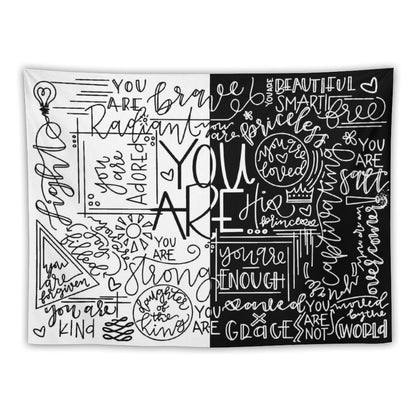 YOU
ARE
brave
Radiant
you
are
Adored
light
YOU
ARE
YOU
ARE
strong
you
are
forgiven
you are
KIND
daughter
of the
King
YOU ARE
BEAUTIFUL
SMART
free
you
are
priceless
you are
loved
His
princess
captivating
YOU
ARE
salt
you are an
overcomer
you are
ENOUGH
GRACE
YOU
ARE
NOT
moved
by the
WORLD